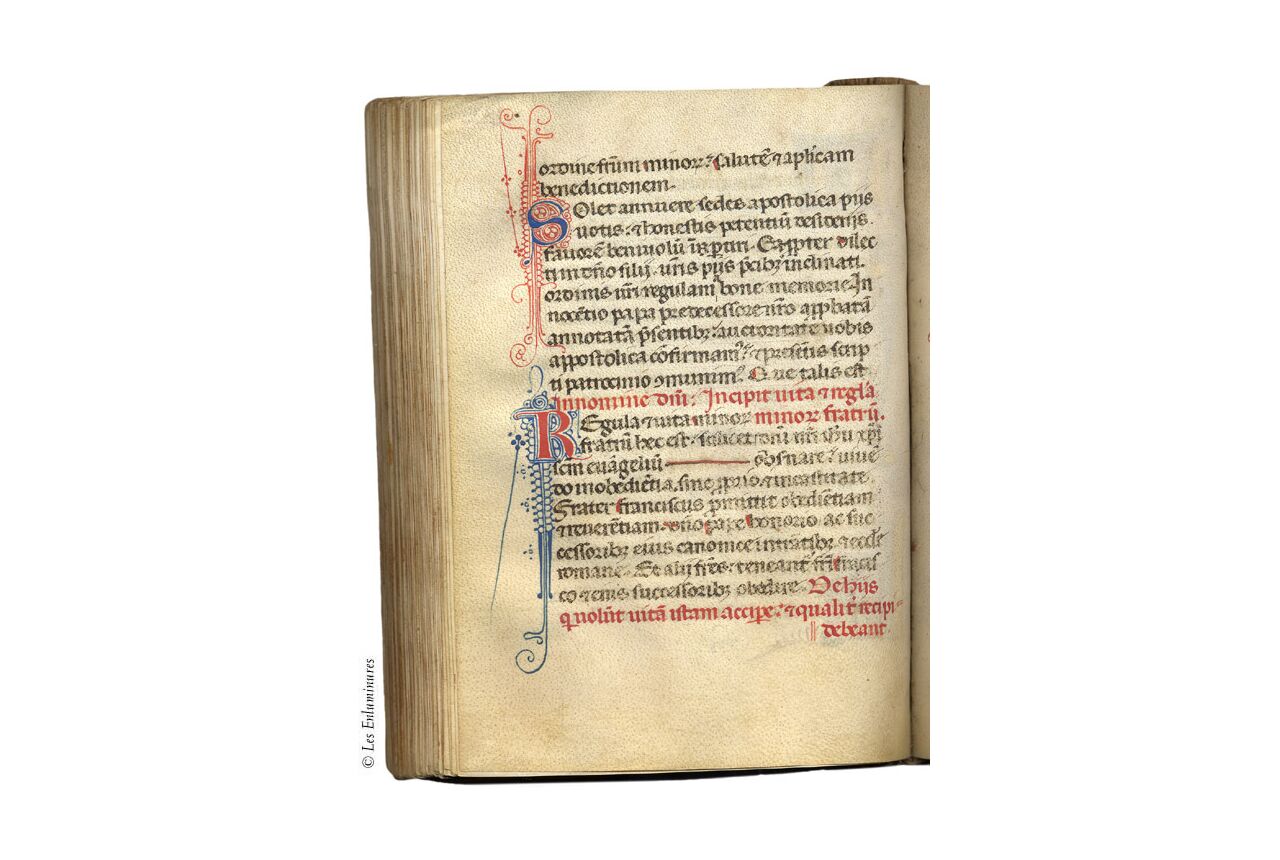 ordine frūm minorꝝ salutē ⁊ aplicam
benedictionem.
Solet annuere sedes apostolica piis
uotis. ⁊ honestis petentiū desiderijs.
fauorē beniuolū īꝑtiri. Eapp̱ter dilec
ti in dn̄o filij. ur̄is pijs p̄cibꝫ inclinati.
ordinis ur̄i regulam bone memorie In
nocētio papa predecessore nr̄o app̱batā
annotatā p̄sentibꝫ. auctoritate uobis
appostolica cōfirmamꝰ. ⁊ presētis scrip
ti patrocinio ꝯmunimꝰ. Que talis est
In nomine dn̄i. Incipit uita ⁊ regl̄a
Regula ⁊ uita minoꝝ minoꝝ fratrū.
fratrū hec est. scilicet dn̄i nr̄i ihū xp̄i
scm̄ euāgeliū obs̄uare. uiuē
do in obediētia. sine ꝓprio. ⁊ in castitate
Frater franciscus ꝓmittit obediētiam
⁊ reuerētiam. dn̄o pape honorio ac suc
cessoribꝫ eius canonice intrātibꝫ ⁊ eccl̄e
romane. Et alij fr̄es. teneant fr̄i francis
co ⁊ eius successoribꝫ obedire. De hijs
qui uolūt uitā istam accipe. ⁊ qualit̄ recipi
debeant
© Les Enluminures